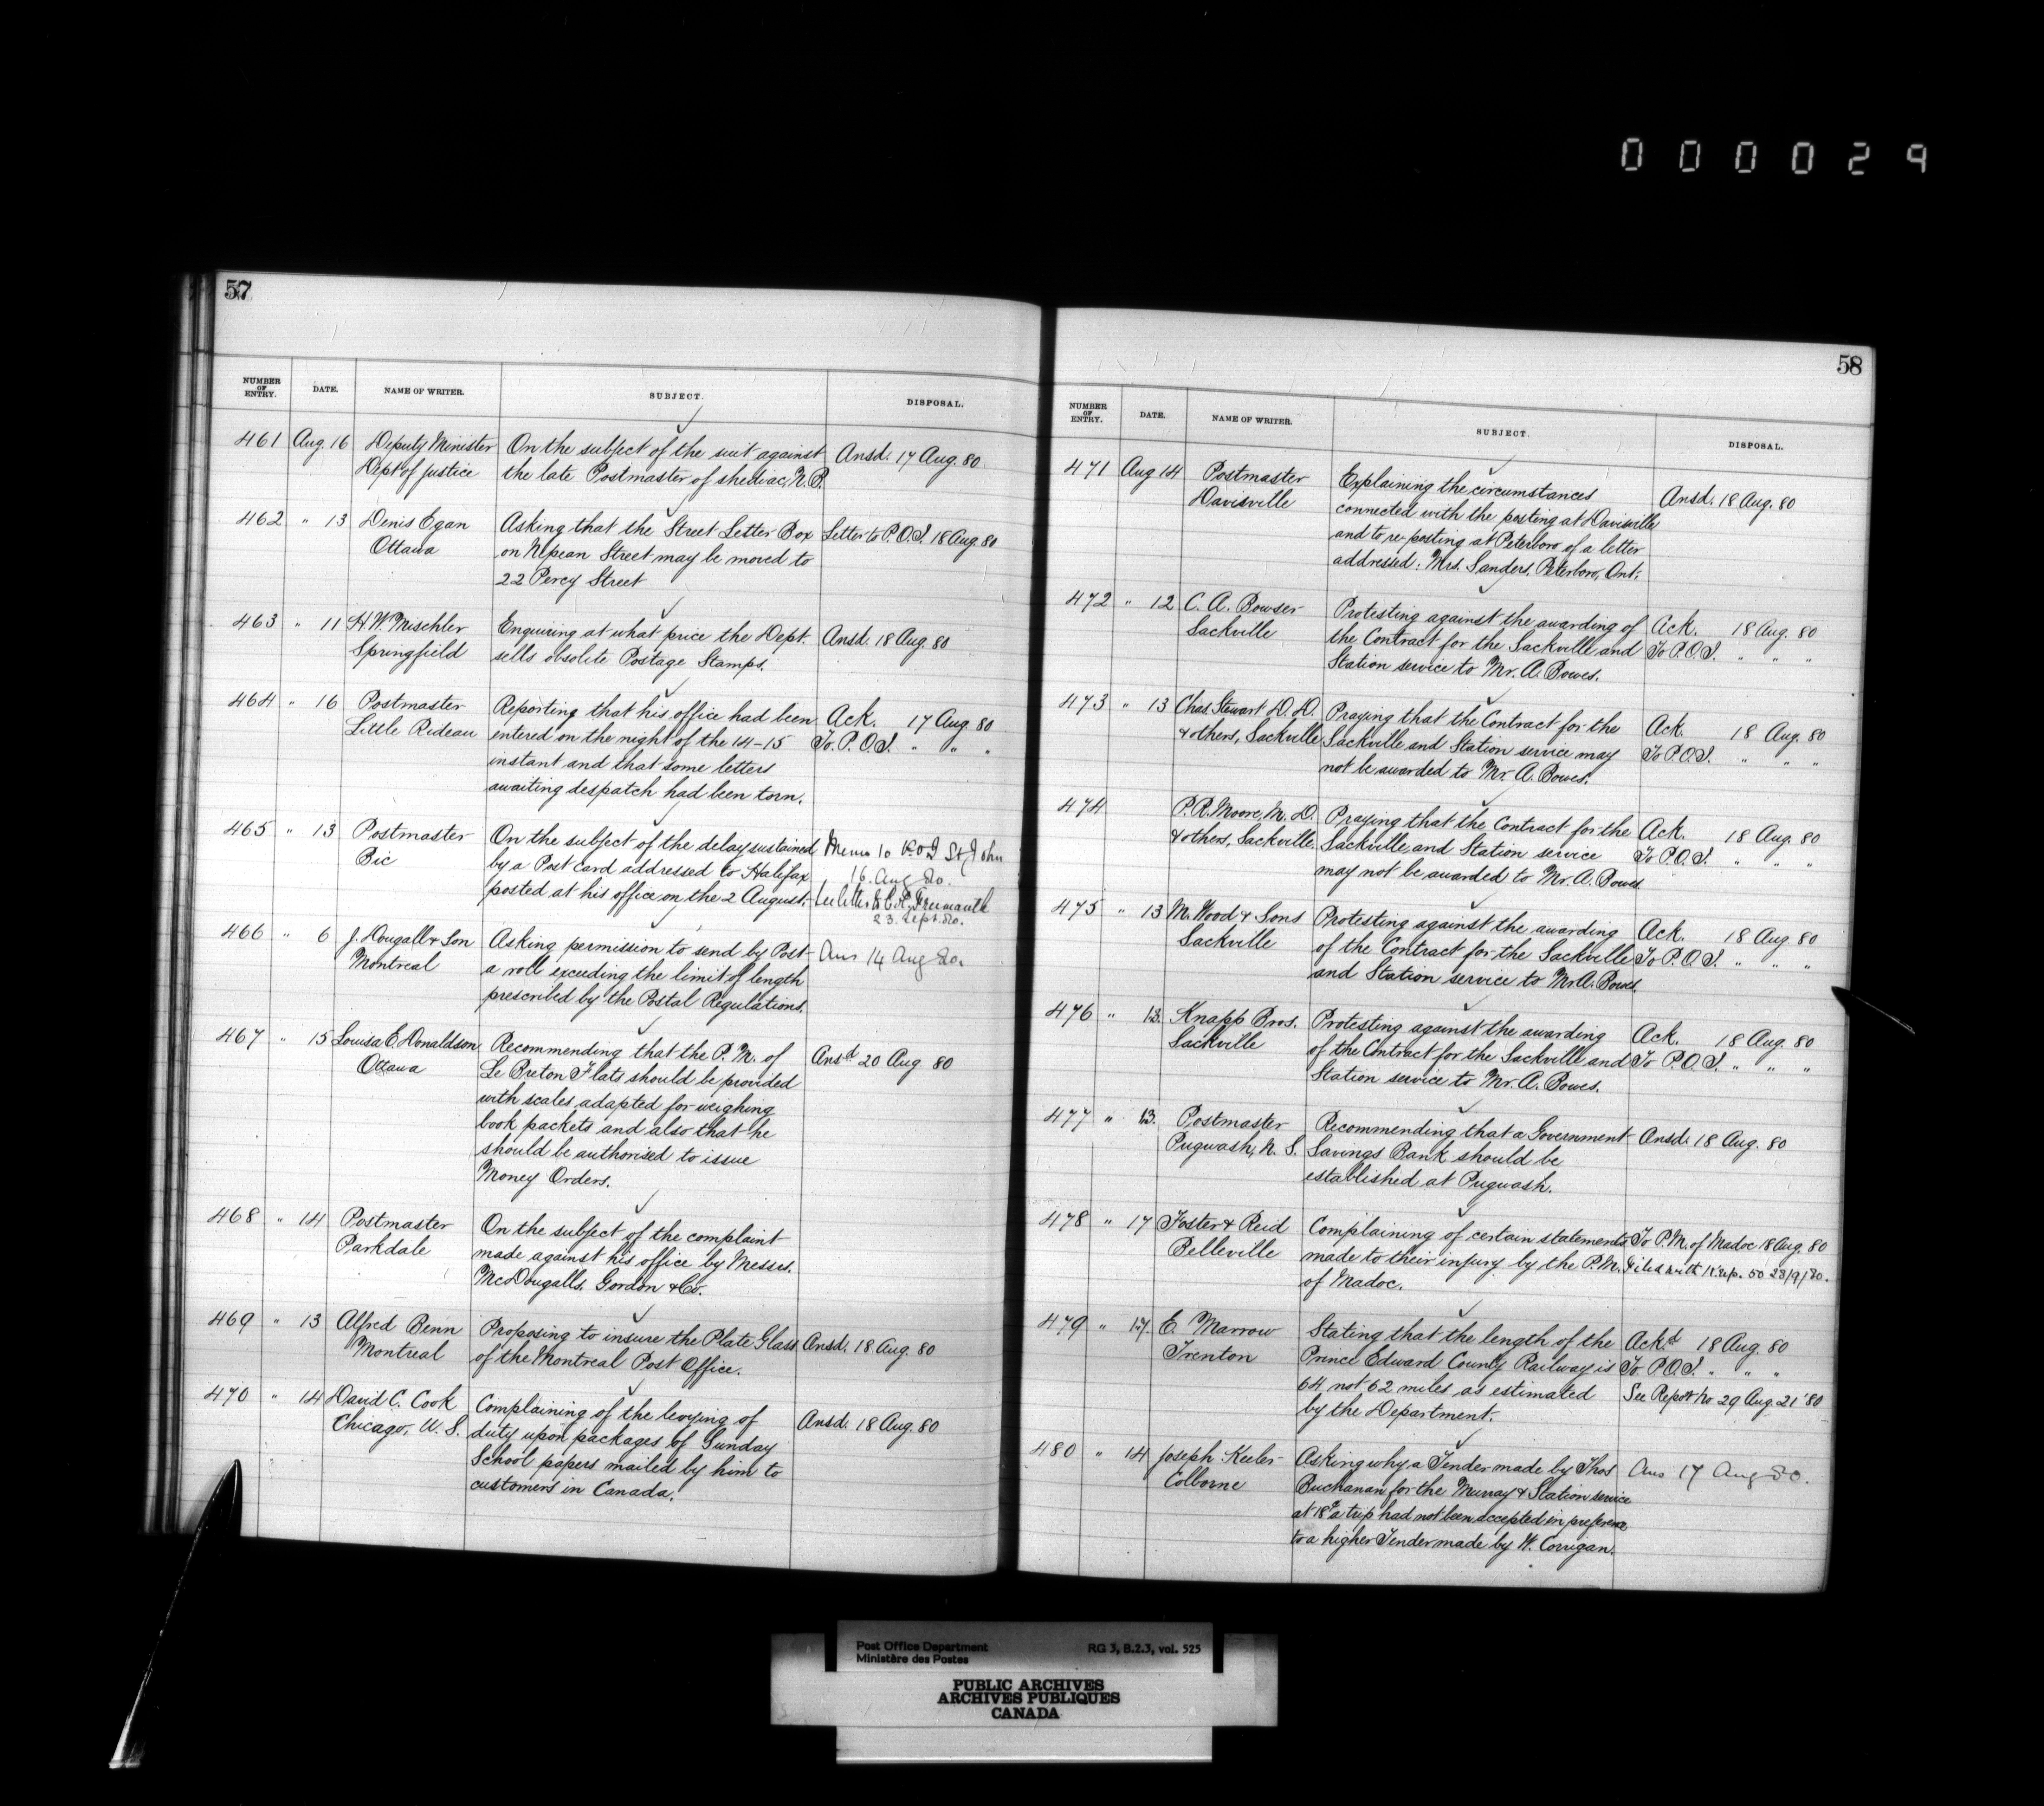 000029
57
NUMBER OF ENTRY. DATE. NAME OF WRITER. SUBJECT. DISPOSAL.
461 Aug. 16 Deputy Minister On the subject of the suit against Ansd. 17 Aug. 80.
Dept of Justice the late Postmaster of Shediac, N.B.
462 " 13 Denis Egan Asking that the Street Letter Box Letter to P.O.I. 18 Aug. 80
Ottawa on Nepean Street may be moved to
22 Percy Street
463 " 11 H.W. Mischler Enquiring at what price the Dept. Ansd. 18 Aug. 80
Springfield sells obsolete Postage Stamps.
464 " 16 Postmaster Reporting that his office had been Ack. 17 Aug. 80
Little Rideau entered on the night of the 14-15 To P.O.I. " " "
instant and that some letters
awaiting despatch had been torn.
465 " 13 Postmaster On the subject of the delay sustained Memo to P.O.I St John
Bic by a Post Card addressed to Halifax 16. Aug 80.
posted at his office on the 2 August.
23. Sept. 80.
466 " 6 J. Dougall & Son Asking permission to send by Post Ans 14 Aug 80.
Montreal a roll exceeding the limit of length
prescribed by the Postal Regulations.
467 " 15 Louisa E. Donaldson Recommending that the P.M. of Ansd 20 Aug 80
Ottawa Le Breton Flats should be provided
with scales adapted for weighing
book packets and also that he
should be authorised to issue
Money Orders.
468 " 14 Postmaster On the subject of the complaint
Parkdale made against his office by Messrs.
McDougalls, Gordon & Co.
469 " 13 Alfred Benn Proposing to insure the Plate Glass Ansd. 18 Aug. 80
Montreal of the Montreal Post Office.
470 " 14 David C. Cook Complaining of the levying of Ansd. 18 Aug. 80
Chicago, U.S. duty upon packages of Sunday
School papers mailed by him to
customers in Canada.
58
NUMBER OF ENTRY. DATE. NAME OF WRITER. SUBJECT. DISPOSAL.
471 Aug 14 Postmaster Explaining the circumstances Ansd. 18 Aug. 80
Davisville connected with the posting at Davisville
and to re-posting at Peterboro of a letter
addressed: Mrs. Sanders, Peterboro, Ont.
472 " 12 C. A. Bowser Protesting against the awarding of Ack. 18 Aug. 80
Sackville the Contract for the Sackville and To P.O.I. " " "
Station service to Mr. A. Bowes.
473 " 13 Chas Stewart D.D. Praying that the Contract for the Ack. 18 Aug. 80
& others, Sackville Sackville and Station service may To P.O.I. " " "
not be awarded to Mr. A. Bowes.
474 P.R. Moore, M.D. Praying that the Contract for the Ack. 18 Aug. 80
& others, Sackville Sackville and Station service To P.O.I. " " "
may not be awarded to Mr. A. Bowes
475 " 13 M. Wood & Sons Protesting against the awarding Ack. 18 Aug. 80
Sackville of the Contract for the Sackville To P.O.I. " " "
and Station service to Mr. A. Bowes.
476 " 13. Knapp Bros. Protesting against the awarding Ack. 18 Aug. 80
Sackville of the Contract for the Sackville and To P.O.I. " " "
Station service to Mr. A. Bowes.
477 " 13. Postmaster Recommending that a Government Ansd. 18 Aug. 80
Pugwash, N.S. Savings Bank should be
established at Pugwash.
478 " 17 Foster & Reid Complaining of certain statements To P.M. of Madoc 18 Aug. 80
Belleville made to their injury by the P.M. Filed with 50 23/9/80.
of Madoc.
479 " 17. E. Marrow Stating that the length of the Ackd 18 Aug. 80
Trenton Prince Edward County Railway is To P.O.I. " " "
64 not 62 miles as estimated See Report No 29 Aug. 21 '80
by the Department.
480 " 14 Joseph Keeler Asking why a Tender made by Thos Ans 17 Aug 80.
Colborne Buchanan for the Murray & Station service
at 18c a trip had not been accepted in preference
to a higher Tender made by W. Corrigan.
Post Office Department RG 3, B.2.3, vol. 525
Ministère des Postes
PUBLIC ARCHIVES
ARCHIVES PUBLIQUES
CANADA